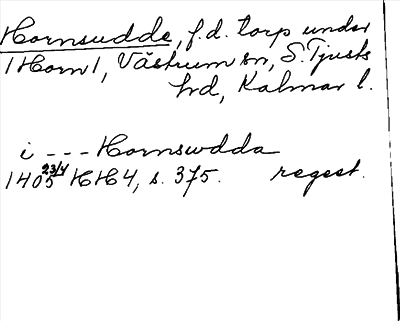 Hornsudde, f.d. torp under
/Horn/, Västrum sn, S. Tjusts
hd, Kalmar l.
i --- Hornswdda
1405 23/4 HH4, s. 375. regest.